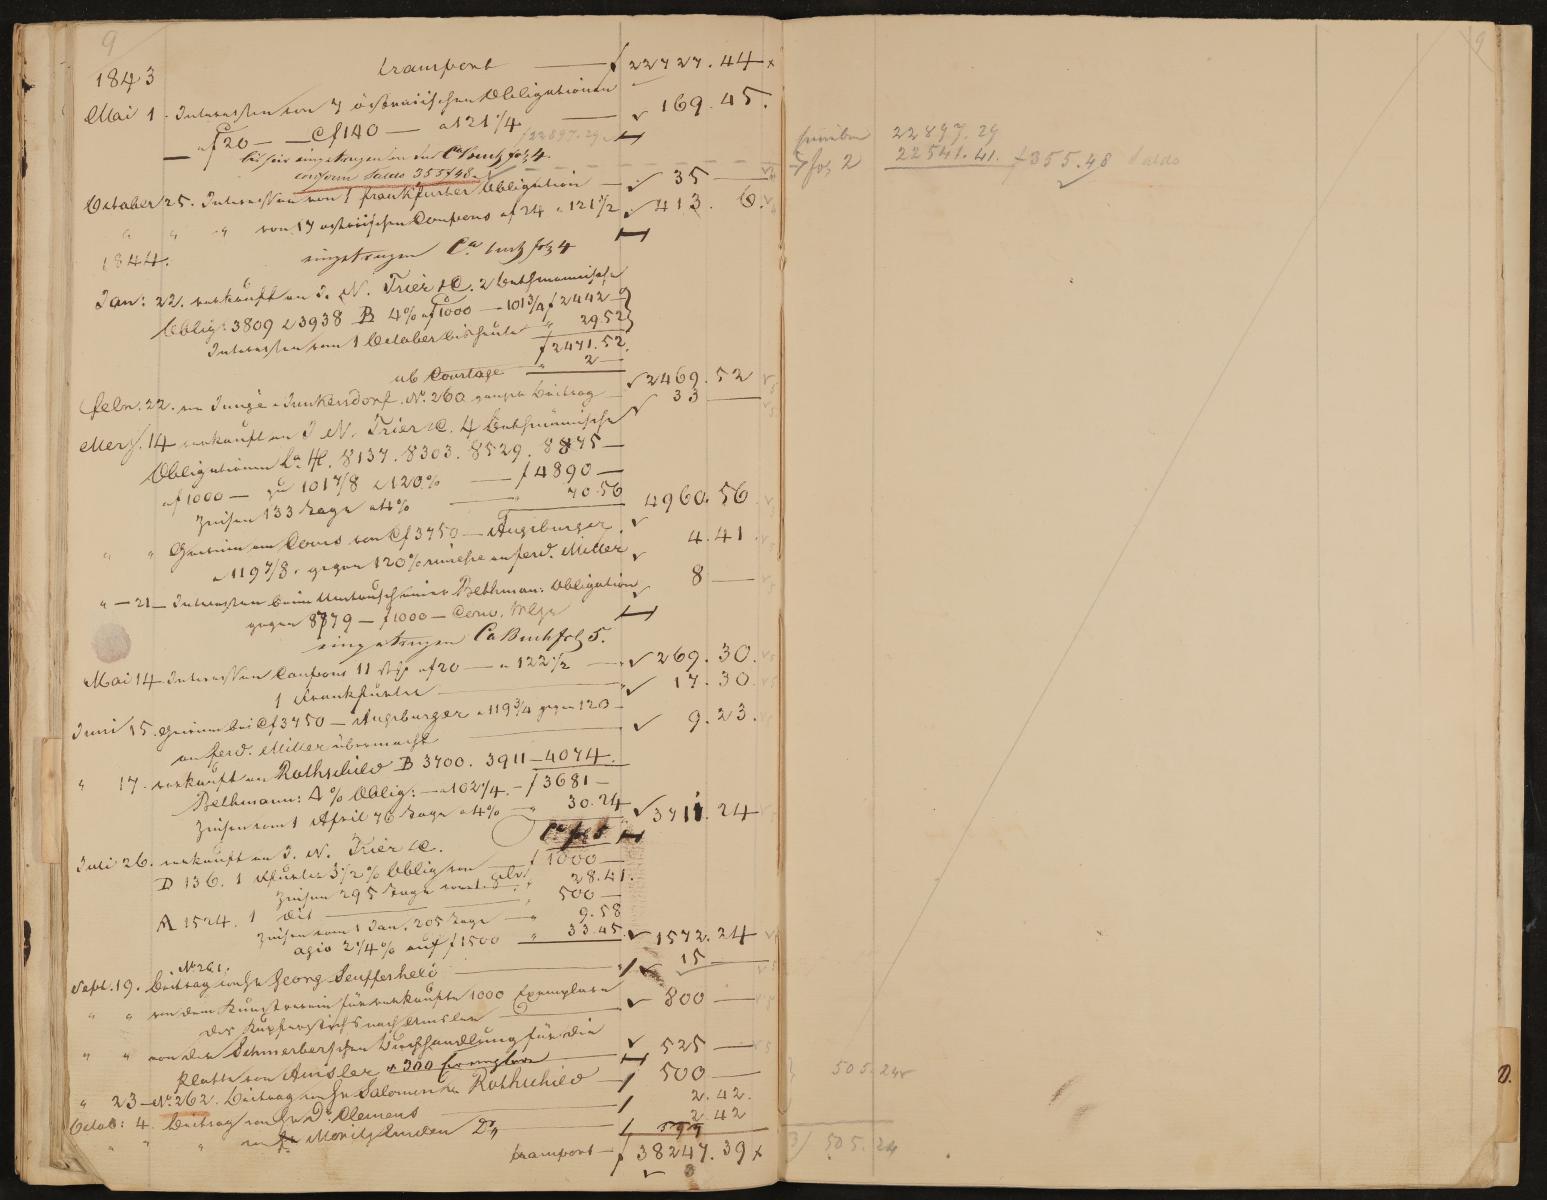 9
1843
transport — f 22727.44 x
Mai 1. Interessen von 7 östreichischen Obligationen
af 20 — Cf 140 — a 121 1/4 — 169.45.
f 22897.29
bis hier eingetragen in das Ca Buch fol. 4.
conform Saldo 355 f 48
October 25. Interessen von 1 frankfurter Obligation — 35 —
" " " von 17 östreichischen Coupons af 24 a 121 1/2 413. 6.
1844. eingetragen Ca buch fol. 4
Jan: 22. verkauft an J. N. Trier & C. 2 bethmannische
Oblig: 3809 & 3938 B 4% af 1000 — 101 3/4 f 2442 —
Interessen vom 1 October bis heute " 29.52
f 2471.52.
ab Courtage " 2 — 2469.52
febr. 22. von Junge Junkersdorf. No. 260 Beitrag 33 —
Merz. 14 verkauft an J. N. Trier & C. 4 Bethmännische
Obligationen La H. 8137. 8303. 8529. 8875 —
af 1000 — zu 101 7/8 a 120% — f 4890 —
Zinsen 133 Tage a 4% — 70.56 4960.56
" " Gewinn am Cours von Cf 3750 — Augsburger
a 119 7/8. gegen 120% an ferd. Miller 4.41
" — 21 — Interessen beim Umtausch einer Bethman: Obligation
gegen 8779 — f 1000 — 8 —
eingetragen Ca Buch fol. 5.
Mai 14 Interessen Coupons 11 af 20 — a 122 1/2 — 269.30.
1 Frankfurter — 17.30
Juni 15. Gewinn bei Cf 3750 — Augsburger a 119 3/4 gegen 120 —
an ferd. Miller übermacht — 9.23.
" 17. verkauft an Rothschild B 3700. 3911 — 4074.
Bethmann: 4% Oblig: — a 102 1/4. — f 3681 —
Zinsen vom 1 April 76 Tage a 4% — 30.24 3711.24
Ca fol 5
Juli 26. verkauft an J. N. Trier & C.
D 136. 1 3 1/2% Oblig von f 1000 —
Zinsen 295 Tage " 28.41.
A 1524. 1 dit — 500 —
Zinsen vom 1 Jan. 205 Tage — " 9.58
agio 2 1/4% auf f 1500 " 33.45. 1572.24
No 261.
Sept. 19. Beitrag von Hr Georg Seufferheld — 15 —
" " von dem Kunstverein für verkaufte 1000 Exemplare
des Kupferstichs nach — 800 —
" " von der Schmerberschen Buchhandlung für die
Platte von Amsler & 300 Exemplare — 525 —
" 23 — No. 262. Beitrag von Hr Salomon Rothschild — 500 —
Octob: 4. Beitrag von Hr Dr. Clemens — 2.42.
" " von Hr Moritz — 2.42
transport — f 38247.39 x
9
22897.29
fol 2 22541.41. f 355.48 Saldo
505.24
505.24